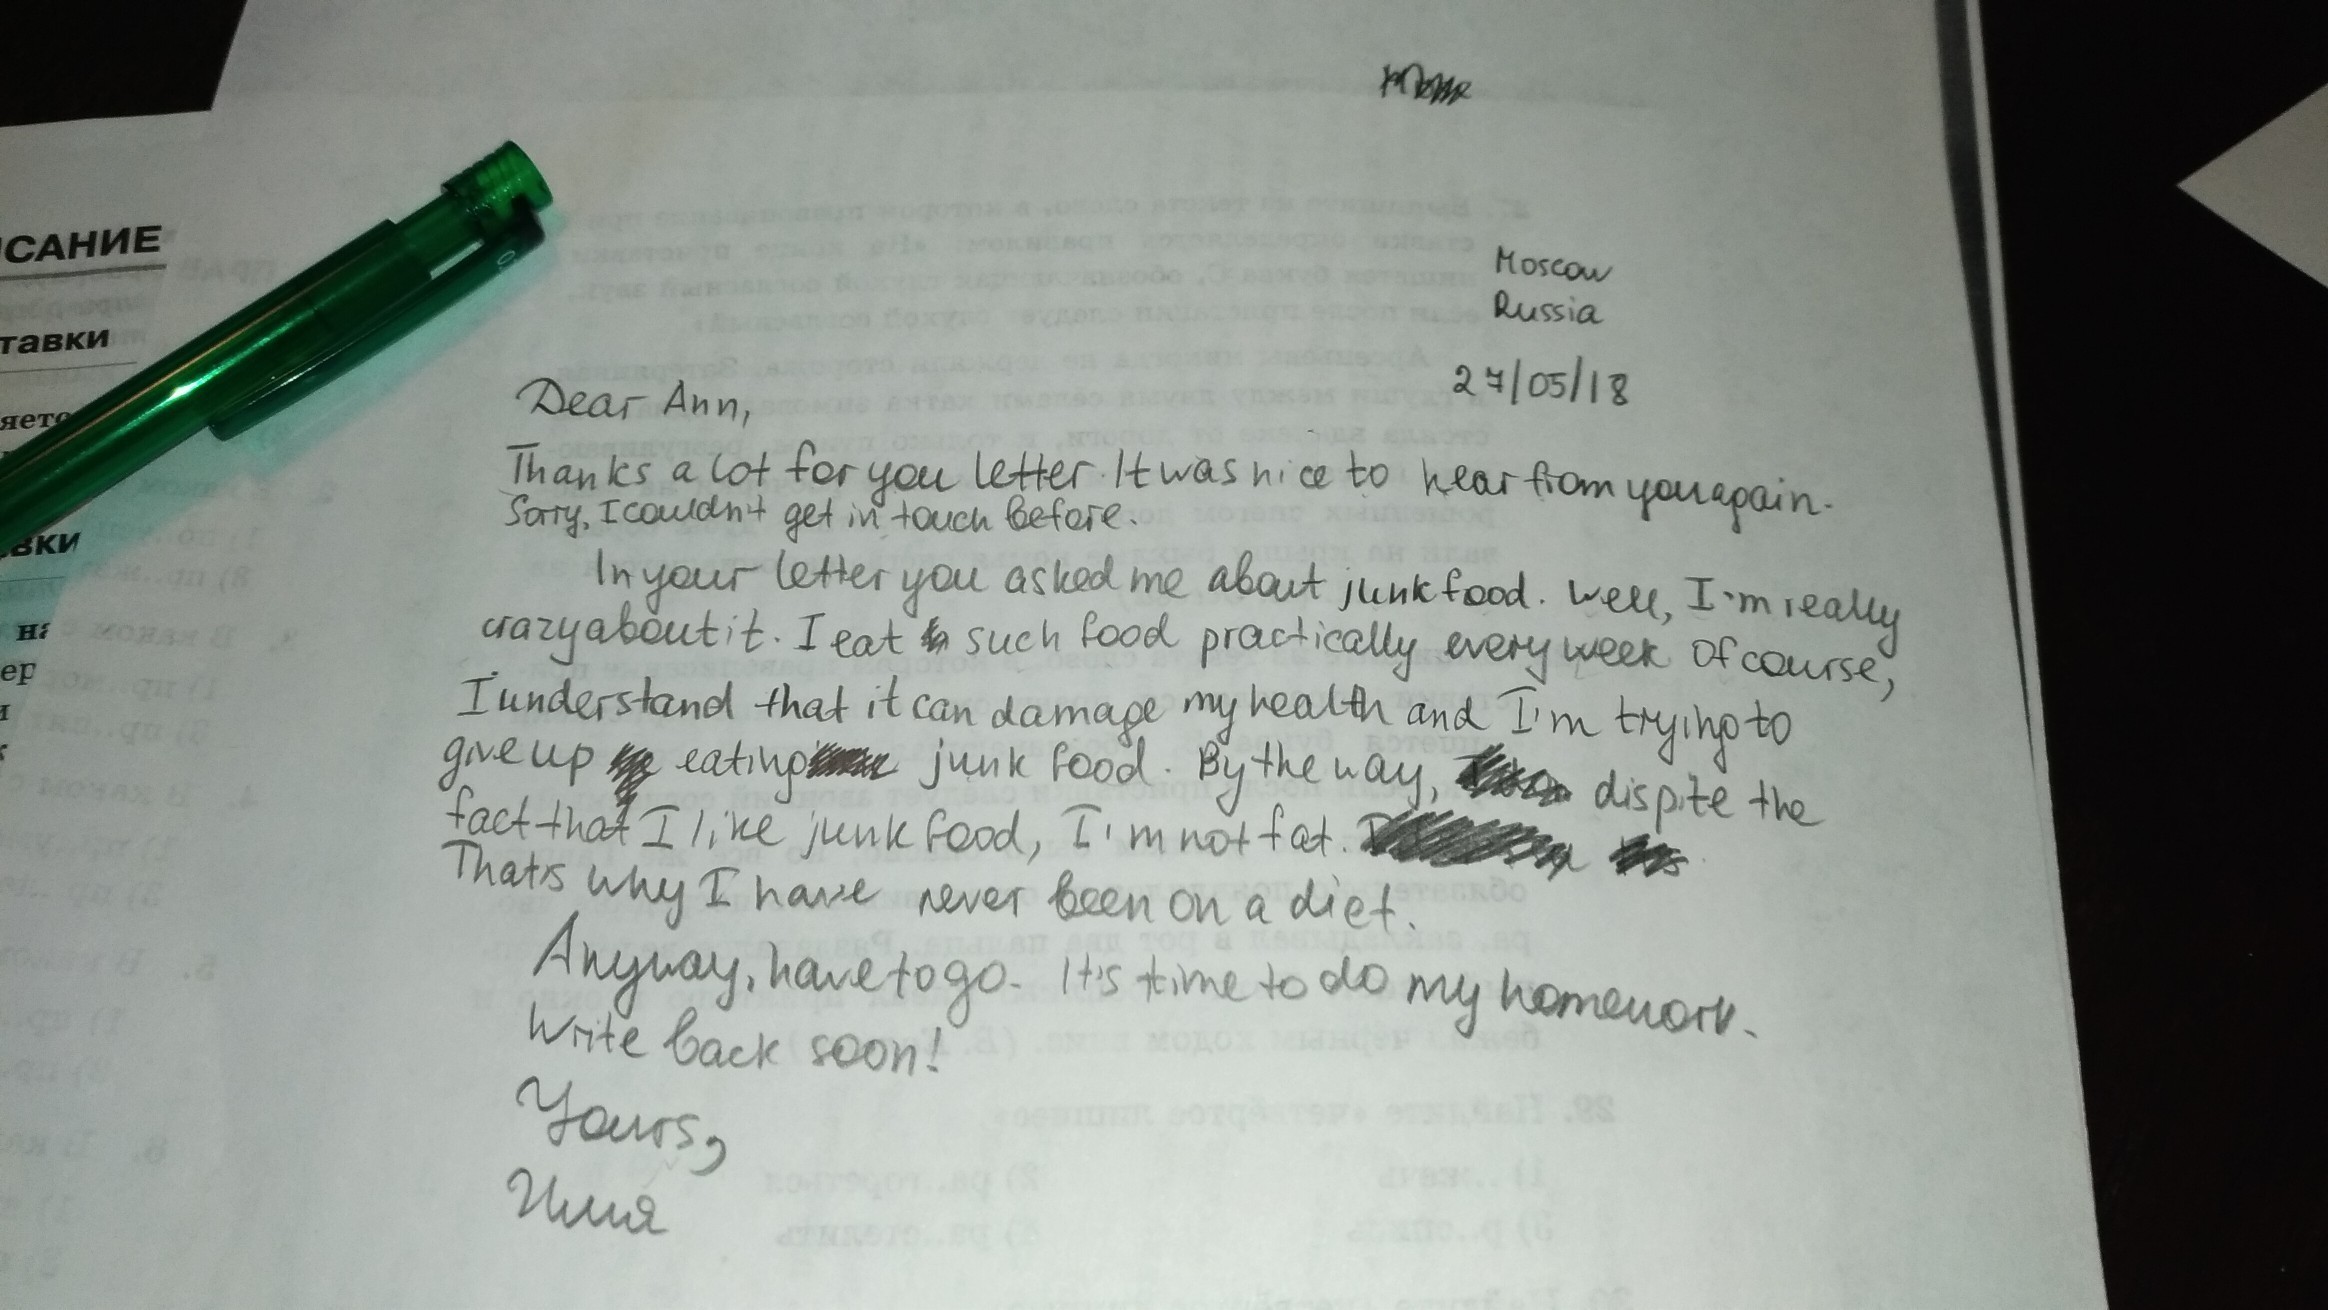 Moscow
Russia
27/05/18
Dear Ann,
Thanks a lot for you letter. It was nice to hear from you again.
Sorry, I couldn't get in touch before.
In your letter you asked me about junk food. Well, I'm really
crazy about it. I eat such food practically every week Of course,
I understand that it can damage my health and I'm trying to
give up eating junk food. By the way, dispite the
fact that I like junk food, I'm not fat.
That's why I have never been on a diet.
Anyway, have to go. It's time to do my homework.
Write back soon!
Yours,
Имя
ИСАНИЕ
тавки
яетс
вки